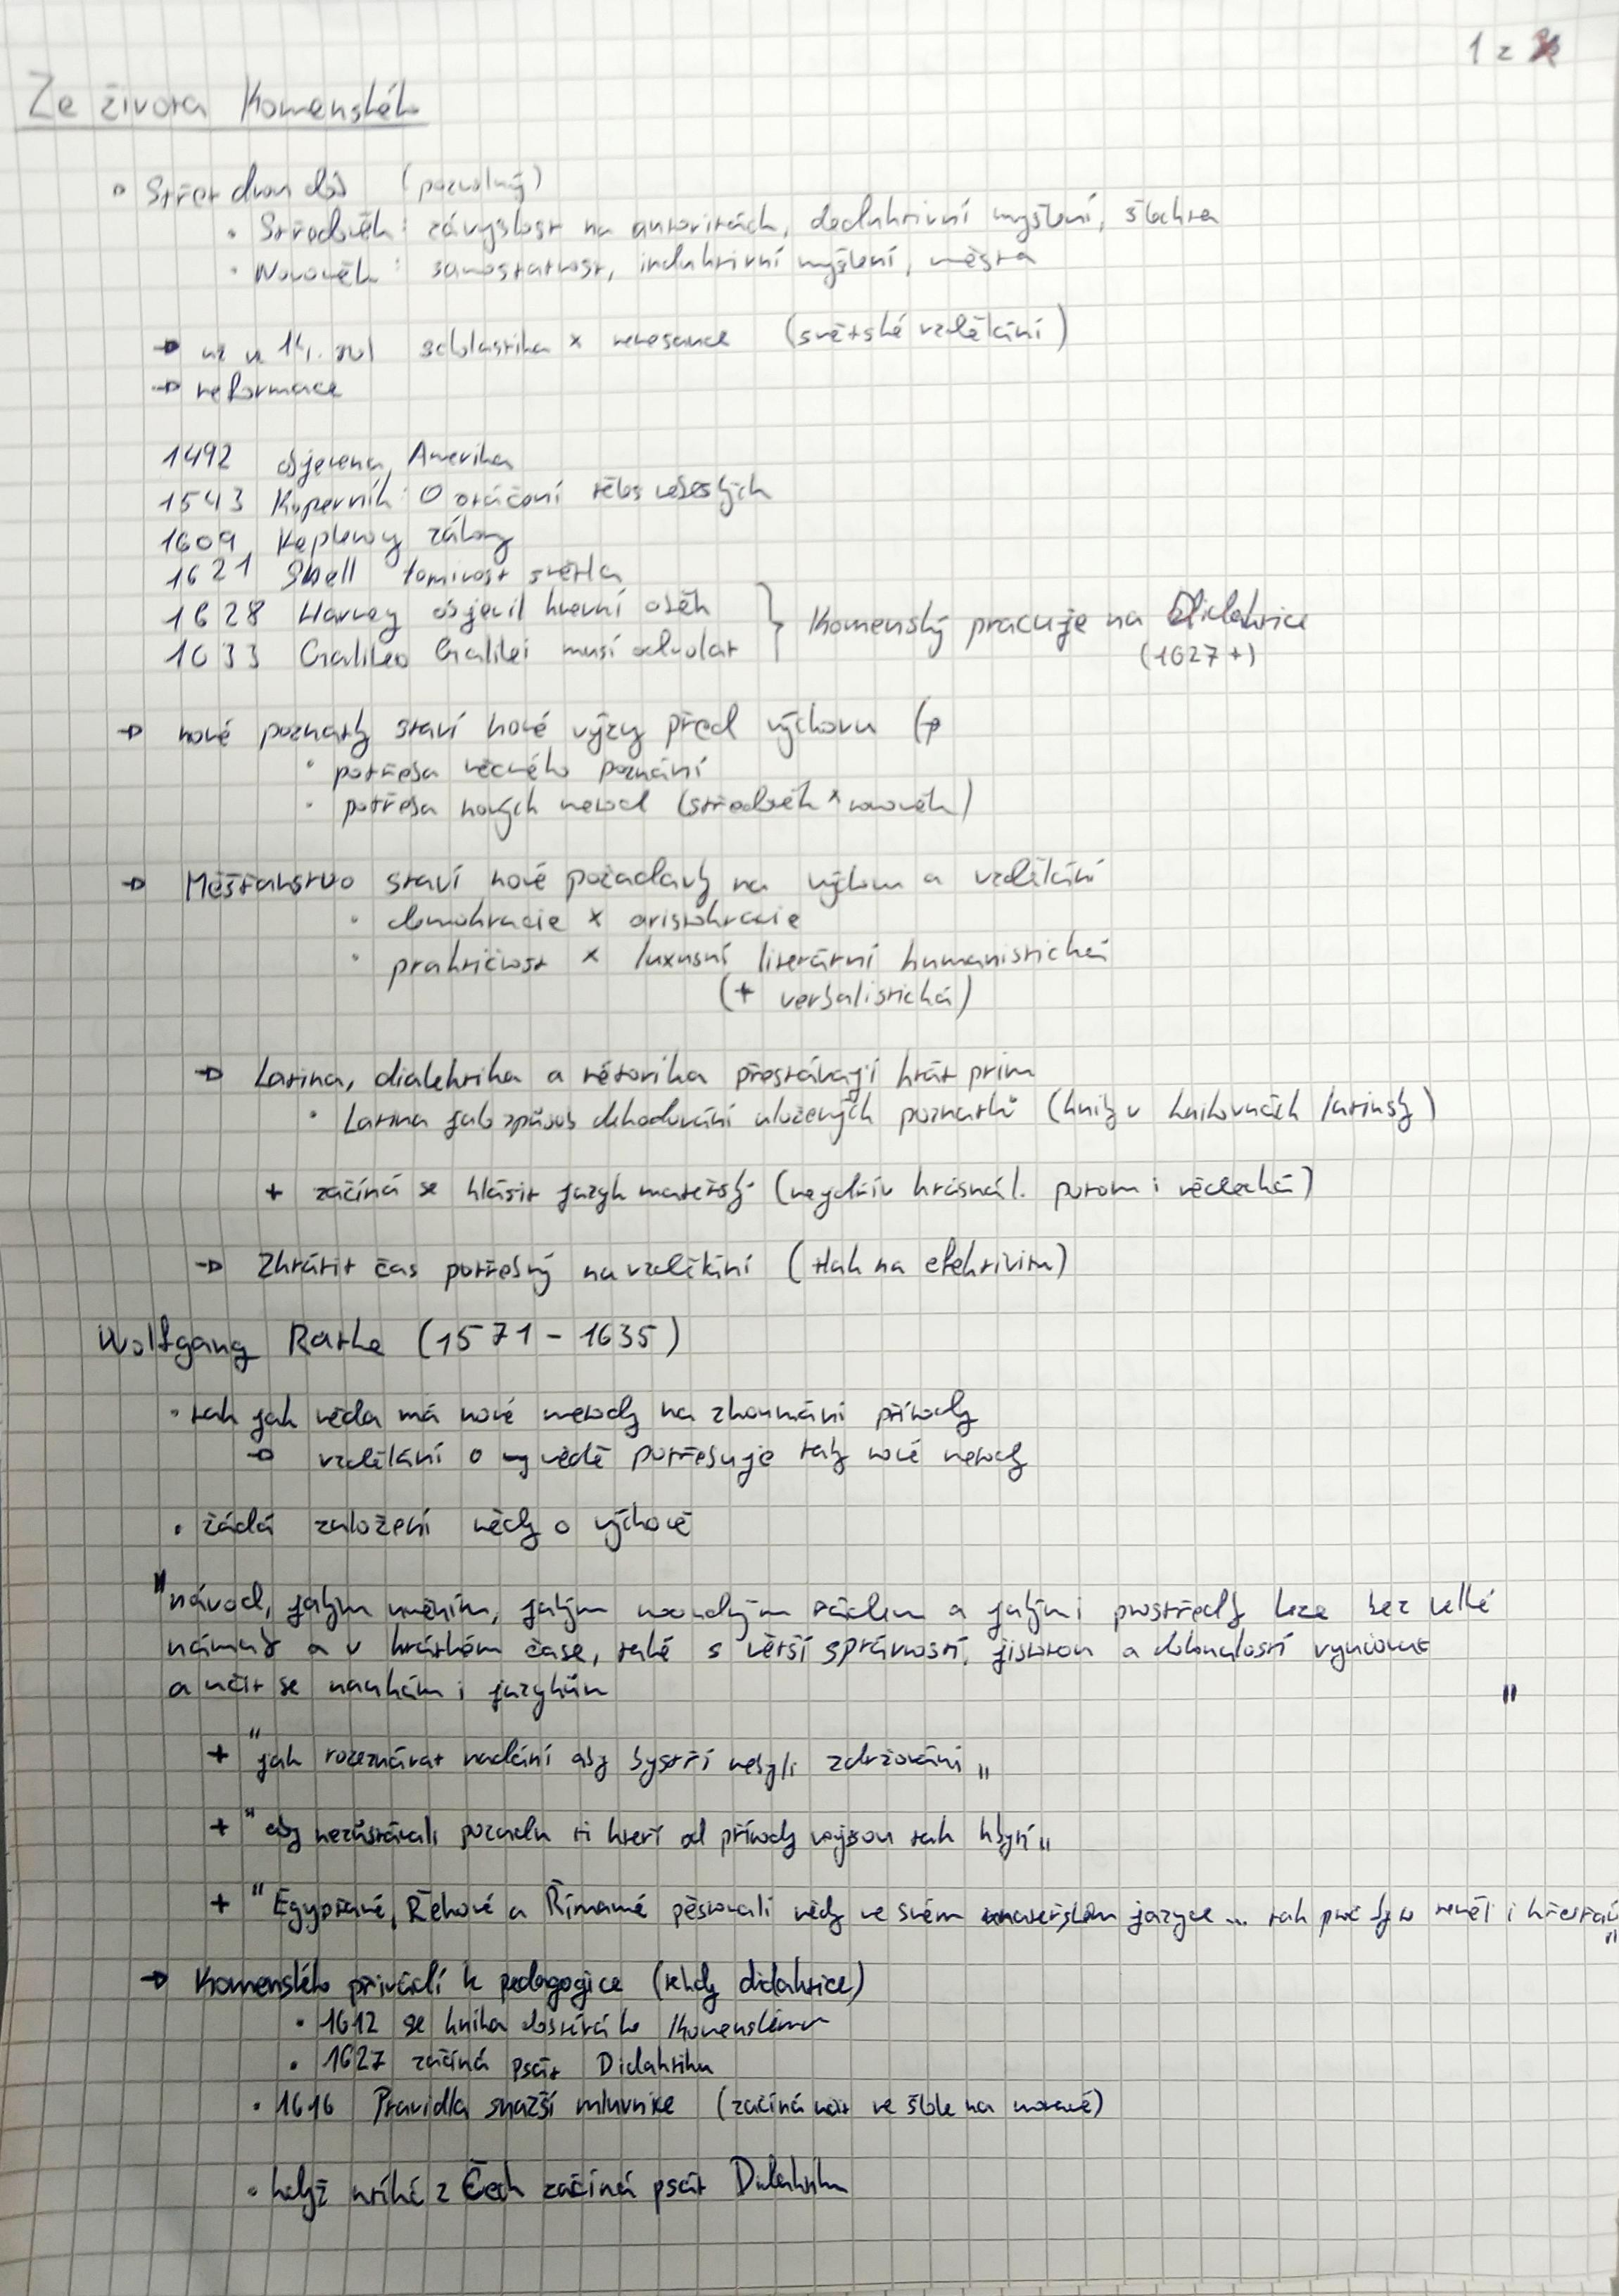 1 z
Ze života Komenského
Střet dvou dob (pozvolný)
Středověk: závyslost na autoritách, deduktivní myšlení, šlechta
Novověk: samostatnost, induktivní myšlení, města
→ už v 14. stol scholastika x renesance (světské vzdělání)
→ reformace
1492 objevena Amerika
1543 Koperník: O otáčení těles nebeských
1609 Keplerovy zákony
1621 Snell lomivost světla
1628 Harvey objevil krevní oběh
1633 Galileo Galilei musí odvolat
Komenský pracuje na Didaktice
(1627+)
→ nové poznatky staví nové výzvy před výchovu (
• potřeba věcného poznání
• potřeba nových metod (středověk x novověk)
→ Měšťanstvo staví nové požadavky na výchovu a vzdělání
• demokracie x aristokracie
• praktičnost x luxusní literární humanistická
(+ verbalistická)
→ Latina, dialektika a rétorika přestávají hrát prim
• Latina jako způsob dekodování uložených poznatků (knihy v knihovnách latinsky)
+ začíná se hlásit jazyk mateřský (nejdřív krásná l. potom i vědecká)
→ Zkrátit čas potřebný na vzdělání (tlak na efektivitu)
Wolfgang Ratke (1571 - 1635)
• tak jak věda má nové metody na zkoumání přírody
→ vzdělání o vědě potřebuje taky nové metody
• žádá založení vědy o výchově
"návod, jakým uměním, jakým moudrým řádem a jakými prostředky lze bez velké
námahy a v krátkém čase, také s větší správností, jistotou a dokonalostí vyučovat
a učit se naukám i jazykům "
+ "jak rozeznávat nadání aby bystří nebyli zdržováni"
+ "aby nezůstávali pozadu ti kteří od přírody nejsou tak hbytí"
+ "Egypťané, Řekové a Římané pěstovali vědy ve svém mateřském jazyce... tak proč by to neměl i křesťan"
→ Komenského přivádí k pedagogice (tehdy didaktice)
• 1612 se kniha dostává ke Komenskému
• 1627 začíná psát Didaktiku
• 1616 Pravidla snažší mluvnice (začíná učit ve škole na moravě)
• když utíká z Čech začíná psát Didaktiku